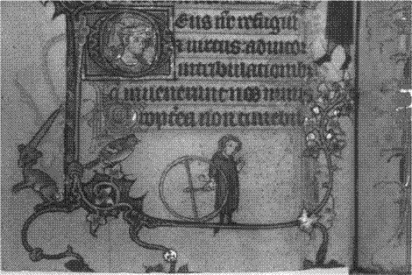 Deus nr̄ refugiū
et virtus adiutor
in tribulationibꝫ
q̄ inuenerunt nos nimis
Propt̄ea non timebim̄